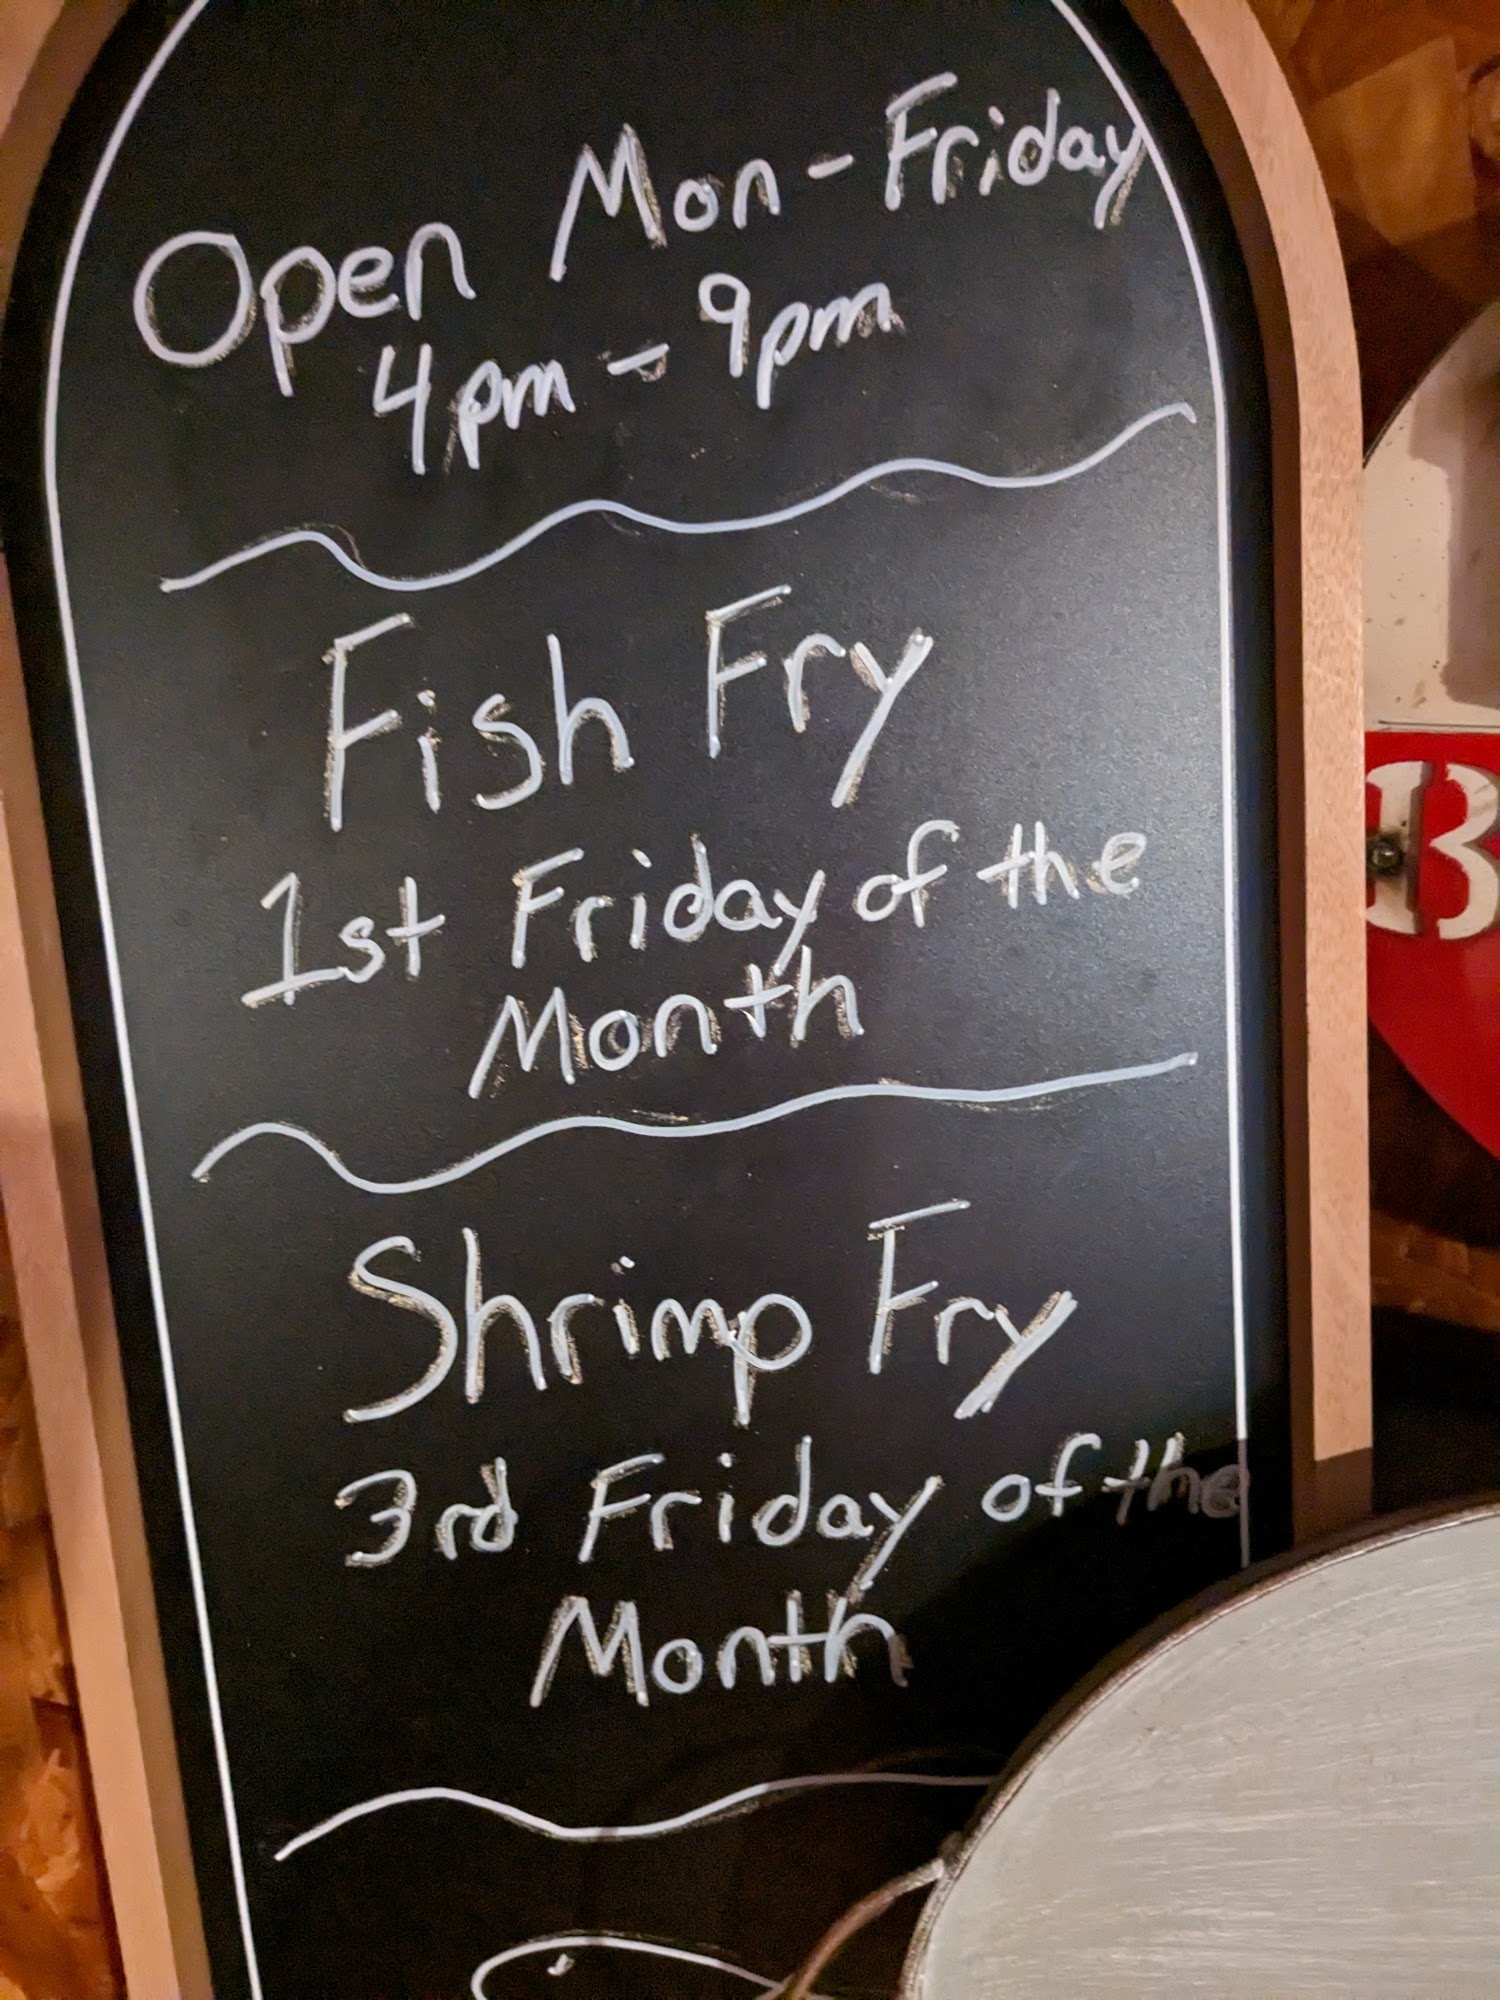 Open Mon-Friday
4pm - 9pm
Fish Fry
1st Friday of the
Month
Shrimp Fry
3rd Friday of the
Month
B